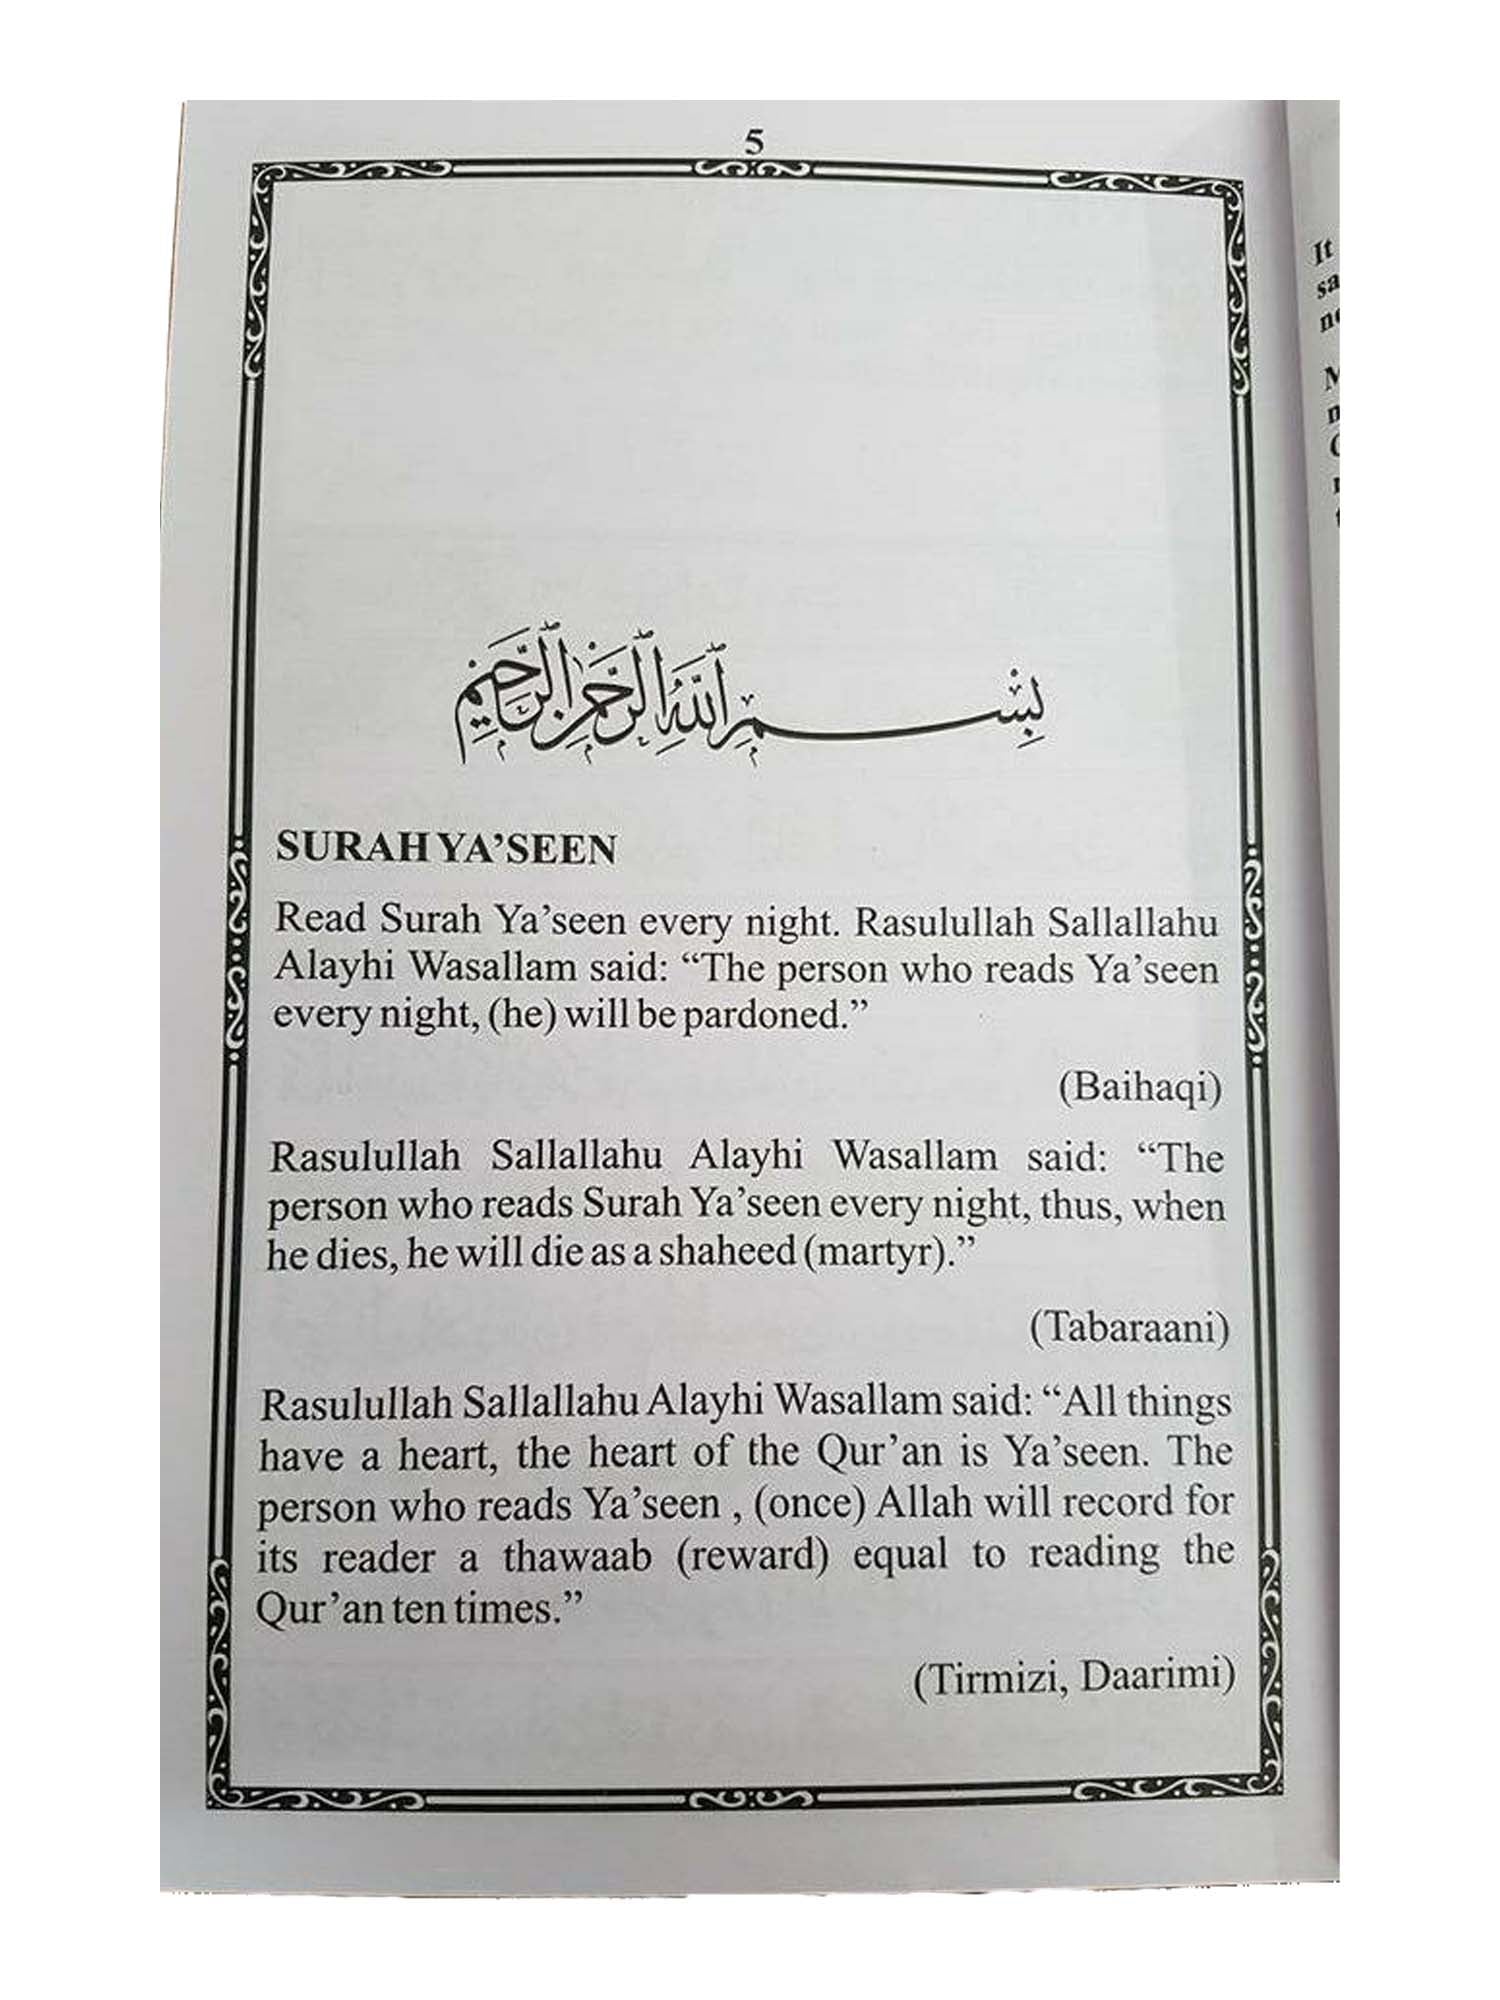 5
بِسْمِ اللَّهِ الرَّحْمٰنِ الرَّحِيْمِ
SURAH YA'SEEN
Read Surah Ya'seen every night. Rasulullah Sallallahu
Alayhi Wasallam said: “The person who reads Ya'seen
every night, (he) will be pardoned.”
(Baihaqi)
Rasulullah Sallallahu Alayhi Wasallam said: “The
person who reads Surah Ya'seen every night, thus, when
he dies, he will die as a shaheed (martyr).”
(Tabaraani)
Rasulullah Sallallahu Alayhi Wasallam said: “All things
have a heart, the heart of the Qur'an is Ya'seen. The
person who reads Ya'seen , (once) Allah will record for
its reader a thawaab (reward) equal to reading the
Qur'an ten times.”
(Tirmizi, Daarimi)
It